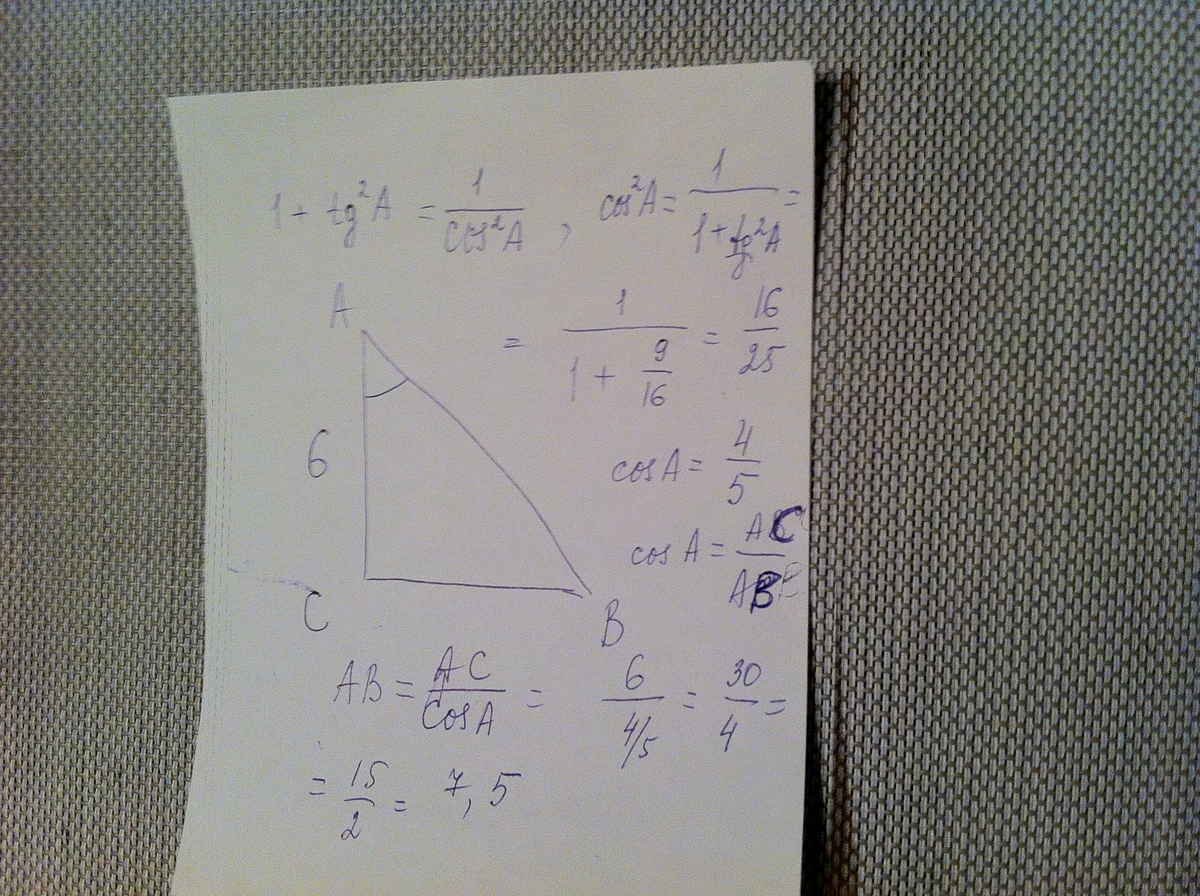 1 + tg²A = 1/cos²A , cos²A = 1/(1 + tg²A) =
A
= 1/(1 + 9/16) = 16/25
6
cos A = 4/5
cos A = AC/AB
C
B
AB = AC/cos A = 6/(4/5) = 30/4 =
= 15/2 = 7,5